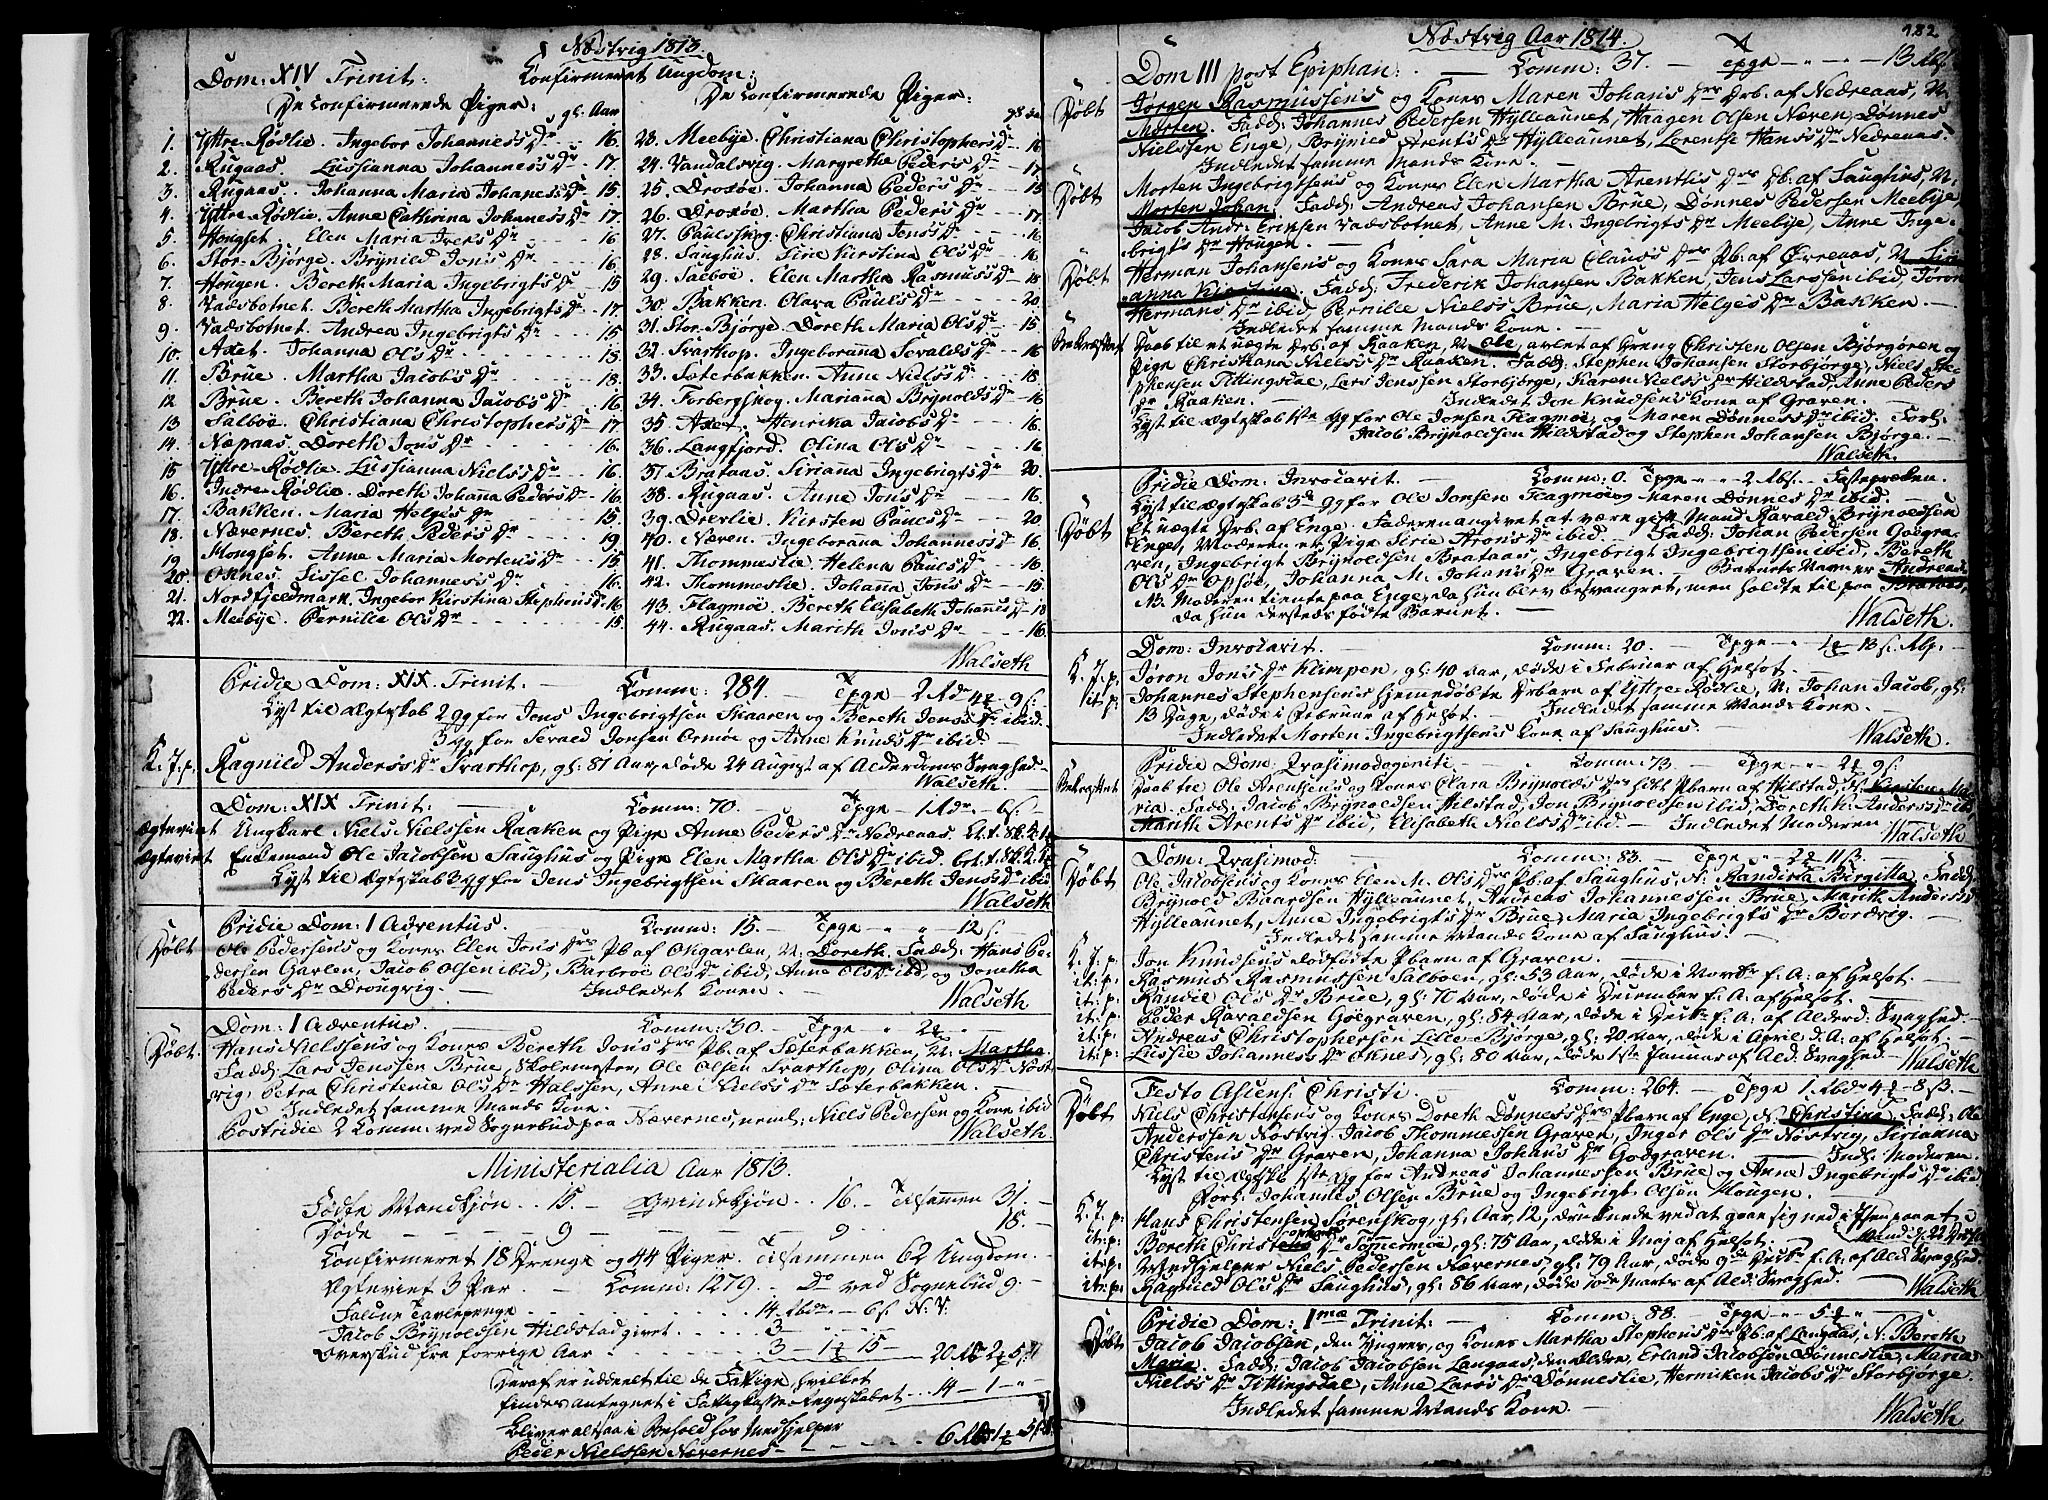 Næstvig 1813.
Dom: XIV Trinit: Confirmeret Ungdom:
De Confirmerede Piger: gl: Aar
1. Yttre-Rødlie. Ingebor Johannes's Dr 16.
2. Rugaas. Lussianna Johannes's Dr 17.
3. Rugaas. Johanna Maria Johannes's Dr 15.
4. Yttre-Rødlie. Anne Cathrina Johannes's Dr 17.
5. Hongset. Elen Maria Ivers Dr 16.
6. Stor-Bjørge. Brynild Jons Dr 16.
7. Hougen. Bereth Maria Ingebrigts Dr 15
8. Vadsbotnet. Bereth Martha Ingebrigts Dr 17.
9. Vadsbotnet. Andrea Ingebrigts Dr 15
10. Axet. Johanna Ols Dr 15.
11. Brue. Martha Jacobs Dr 18.
12 Brue. Bereth Johanna Jacobs Dr 16.
13 Salboe. Christiana Christophers Dr 17
14. Næpaas. Doreth Jons Dr 16.
15 Yttre-Rødlie. Lussianna Niels's Dr 16.
16. Indre-Rødlie. Doreth Johana Peders Dr 16.
17. Bakken. Maria Helges Dr 15.
18. Nævernes. Bereth Peders Dr 19.
19 Hongset. Anne Maria Mortens's Dr 15
20 Oknes. Sissel Johannes's Dr 16.
21. Nordfjeldmark. Ingebor Kirstina Stephens Dr 16
22. Meebye. Pernille Ols Dr 15.
De Confirmerede Piger:
23. Meebye. Christiana Christophers Dr 16
24. Vandalsvig. Margrethe Peders Dr 17
25. Drosøe. Johanna Peders Dr 15
26. Droxøe. Martha Peders Dr 17.
27. Paulsskog. Christiana Jons's Dr 16.
28. Saughus. Sirie Kirstina Ols Dr 16
29. Salboe. Elen Martha Rasmus's Dr 18
30. Bakken. Olava Pauls Dr 20.
31. Stor-Bjørge. Doreth Maria Ols Dr 15
32. Svarthop. Ingeboranna Sevalds Dr 16
33. Sæterbakken. Anne Niels's Dr 18
34. Forbergskog. Mariana Brynolds Dr 16
35 Axet. Henrika Jacobs Dr 16.
36. Langfjord. Olina Ols Dr 16
37. Brataas. Siriana Ingebrigts Dr 20.
38. Rugaas. Anne Jons Dr 16.
39. Drevlie. Kirsten Pauls Dr 20
40. Næven. Ingeboranna Johannes's Dr 16.
41. Thommeslie. Helena Pauls Dr 16
42. Thommeslie. Johanna Jons Dr 15.
43. Flagmøe. Bereth Elisabeth Johannis Dr 18
44. Rugaas. Marith Jons Dr 16.
Walseth
Pridie Dom: XIX. Trinit. Comm: 284. Tpge 2 Rdr 4 9 ß.
Lyst til Ægteskab 2 gg for Jens Ingebrigtsen Skaaren og Bereth Jens's Dr ibid.
3 gg for Sevald Jonsen Ormøe og Anne Knuds Dr ibid.
K. J. p. Ragnild Anders's Dr Svarthop, gl: 81 Aar, døde 24 August af Alderdoms Svaghed.
Walseth.
Dom: XIX Trinit: Comm: 70. Tpge 1 Rdr 6 ß.
Ægteviet Ungkarl Niels Nielssen Raaken og Pige Anne Peders Dr Nedreaas.
Ægteviet Enkemand Ole Jacobsen Saughus og Pige Elen Martha Ols Dr ibid.
Lyst til Ægteskab 3 gg for Jens Ingebrigtsen Skaaren og Bereth Jens's Dr ibid
Walseth
Pridie Dom: I Adventus. Comm: 15. Tpge " " 12 ß.
Døbt Ole Pedersens og Kones Elen Jons Drs Pb. af Okgarlen, N: Doreth. Fadd: Hans Pe-
dersen Garlen, Jacob Olsen ibid, Barbroe Ols Dr ibid, Anne Ols Dr ibid, og Jonetha
Peders Dr Drongvig. Indledet Konen.
Walseth
Dom: I Adventus. Comm: 30. Tpge " 2
Døbt. Hans Nielssens og Kones Bereth Jons Drs Pb. af Sæterbakken, N: Martha.
Fadd: Lars Jenssen Brue, Skolemester, Ole Olsen Svarthop, Olina Ols Dr Nøst-
vig, Petra Christenie Ols Dr Halssen, Anne Niels's Dr Sæterbakken.
Indledet samme Mands Kone.
Postridie 2 Komm: ved Sognebud paa Nævernes, neml: Niels Pedersen og Kone ibid
Walseth
Ministerialia Aar 1813.
Fødte Mandkjøn .. 15. Qvindekjøn .. 16. Tilsamen 31.
Døde 9 9 18.
Confirmeret 18 Drenge og 44 Piger. Tilsammen 62 Ungdom.
Ægteviet 3 Par. Komm: 1279. Do ved Sognebud 9.
Faldne Tavlepenge 14 Rbdr " 6 ß N. V.
Jacob Brynoldsen Hildstad givet 3
Overskud fra forrige Aar 3 1 15 20 Rb 2
Deraf er uddeelt til de Fattige, hvilket
findes antegnet i Fattigkasse Regnskabet 14 1 "
Bliver altsaa i Behold hos Medhjelper
Peder Nielssen Nævernes 6 Rb 1
Næstvig Aar 1814. 182
Dom III post Epiphan: Comm: 37. Tpge " " 13
Døbt Jørgen Rasmussens og Kones Maren Johans Drs Drb. af Nedreaas, N:
Morten. Fadd: Johannes Pedersen Hylleaunet, Haagen Olsen Næven, Dønnes
Nielssen Enge, Brynild Arents Dr Hylleaunet, Lorentse Hans's Dr Nedreaas.
Indledet samme Mands Kone.
Døbt Morten Ingebrigtsens og Kones Elen Martha Arenthis Drs Db: af Saughus, N:
Morten Johan. Fadd: Andreas Johansen Brue, Dønnes Pedersen Meebye,
Jacob Andr: Eriksen Vadsbotnet, Anne M. Ingebrigts Dr Meebye, Anne Inge-
brigts Dr Hougen.
Døbt Herman Johansens og Kones Sara Maria Claus's Drs Pb: af Øvreaas, N: Siri-
anna Kirstina. Fadd: Frederik Johansen Bakken, Jens Larssen ibid, Jøron
Hermans Dr ibid, Pernille Niels's Brue, Maria Helges Dr Bakken.
Indledet samme Mands Kone.
Bekræftet Daab til et uægte Drb. af Raaken, N: Ole, avlet af Dreng Christen Olsen Bjørgøren og
Pige Christiana Niels's Dr Raaken. Fadd: Stephen Johansen Storbjørge, Niels Ste-
phensen Tittingsdal, Lars Jenssen Storbjørge, Karen Niels's Dr Hildstad, Anne Peders
Dr Raaken. Indledet Jon Knudsens Kone af Graven.
Lyst til Ægteskab 1ste gg for Ole Jonsen Flagmøe, og Maren Dønnes Dr ibid. Forl:
Jacob Brynoldsen Hildstad og Stephen Johansen Bjørge.
Walseth.
Pridie Dom: Invocavit. Comm: 0. Tpge " " 2 Rbß. Fasteprædken.
Lyst til Ægteskab 3de gg for Ole Jonsen Flagmøe og Maren Dønnes Dr ibid.
Døbt Et uægte Drb. af Enge. Faderen angivet at være gift Mand Havald Brynoldsen
Enge, Moderen er Pige Sirie Arons Dr ibid. Fadd: Johan Pedersen Godgra-
ven, Ingebrigt Brynoldsen Brataas, Ingebrigt Ingebrigtsen ibid, Bereth
Ols Dr Opsøe, Johanna M. Johans Dr Graven. Barnets Navn er Andreas.
NB. Moderen tiente paa Enge, da hun blev besvangret, men holdte til paa Brataas,
da hun dersteds fødte Barnet.
Walseth.
Dom: Invocavit. Comm: 20. Tpge " 4 13 ß.
K. J. p. Jøron Jons Dr Klimpen, gl: 40 Aar, døde i Februar af Helsot.
it: p: Johannes Stephensens hjemedøbte Drbarn af Yttre-Rødlie, N: Johan Jacob, gl:
13 Dage, døde i Februar af Helsot. Indledet samme Mands Kone.
Indledet Morten Ingebrigtsens Kone af Saughus.
Walseth.
Pridie Dom: Qvasimodogeniti. Comm: 73. Tpge " 2 9 ß.
Bekræftet Daab til Ole Arentsens og Kones Clara Brynolds Drs Pbarn af Hilstad, N: Kirsten Ma-
ria. Fadd: Jacob Brynoldsen Hilstad, Jon Brynoldsen ibid, Doreth K: Anders's Dr ib,
Marith Arents Dr ibid, Elisabeth Niels's Dr ibid. Indledet Moderen
Walseth
Dom: Qvasimod: Comm: 83. Tpge " 2 11 ß.
Døbt Ole Jacobsens og Kones Elen M. Ols Drs Pb. af Saughus, N: Randina Birgitta. Fadd:
Brynold Baardsen Hylleaunet, Andreas Johannessen Brue, Marith Anders's Dr
Hylleaunet, Anne Ingebrigts Dr Brue, Maria Ingebrigts Dr Bordvig.
Indledet samme Mands Kone af Saughus.
K. J. p. Jon Knudsens dødfødte Pbarn af Graven.
it: p: Rasmus Rasmussen Salboen, gl: 53 Aar, døde i Novbr f: A: af Helsot.
it: p: Randie Ols Dr Brue, gl: 70 Aar, døde i December f: A: af Helsot.
it: p: Peder Havaldsen Godgraven, gl: 84 Aar, døde i Decbr f: A: af Alderd: Svaghed.
it: p: Andreas Christophersen Lille-Bjørge, gl: 20 Aar, døde i April d. A: af Helsot.
it: p: Lussie Johannes's Dr Oknes, gl: 80 Aar, døde 1ste Januar af Ald: Svaghed. Walseth
Festo Ascens: Christi. Comm: 264. Tpge 1 Rbdr 4 8 ß.
Døbt Niels Christensens og Kones Doreth Dønnes's Drs Pbarn af Enge, N: Christina. Fadd: Ole
Anderssen Nøstvig. Jacob Thommessen Graven, Inger Ols Dr Nøstvig, Sirianna
Christens Dr Graven, Johanna Johans Dr Godgraven. Indl: Moderen.
Lyst til Ægtsk: 1ste gg for Andreas Johannessen Brue og Anne Ingebrigts Dr ibid.
Forl: Johannes Olsen Brue og Ingebrigt Olsen Hougen.
K. J. p: Hans Christensen Sørenskog, gl: Aar, 12, druknede ved at gaae sig ned i Isen paa et
Vand d: 22
it: p: Bereth Christophers Dr Sommermøe, gl: 75 Aar, døde i Maj af Helsot.
it: p: Medhjelper Niels Pedersen Nævernes, gl: 79 Aar, døde 9de Decbr f: A: af Ald: Svaghed.
it: p: Ragnild Ols Dr Saughus, gl: 86 Aar, døde 10de Marts af Ald: Svaghed. Walseth
Pridie Dom: 1mæ Trinit: Comm: 88. Tpge " 5 "
Døbt Jacob Jacobsen, den Yngres, og Kones Martha Stephens Drs Pb. af Langaas, N: Bereth
Maria. Fadd: Jacob Jacobsen Langaas, den Ældre, Erland Jacobsen Dønneslie, Maria
Niels's Dr Tittingsdal, Anne Lars's Dr Dønneslie, Henrikken Jacobs Dr Storbjørge.
Indledet samme Mands Kone.
Walseth